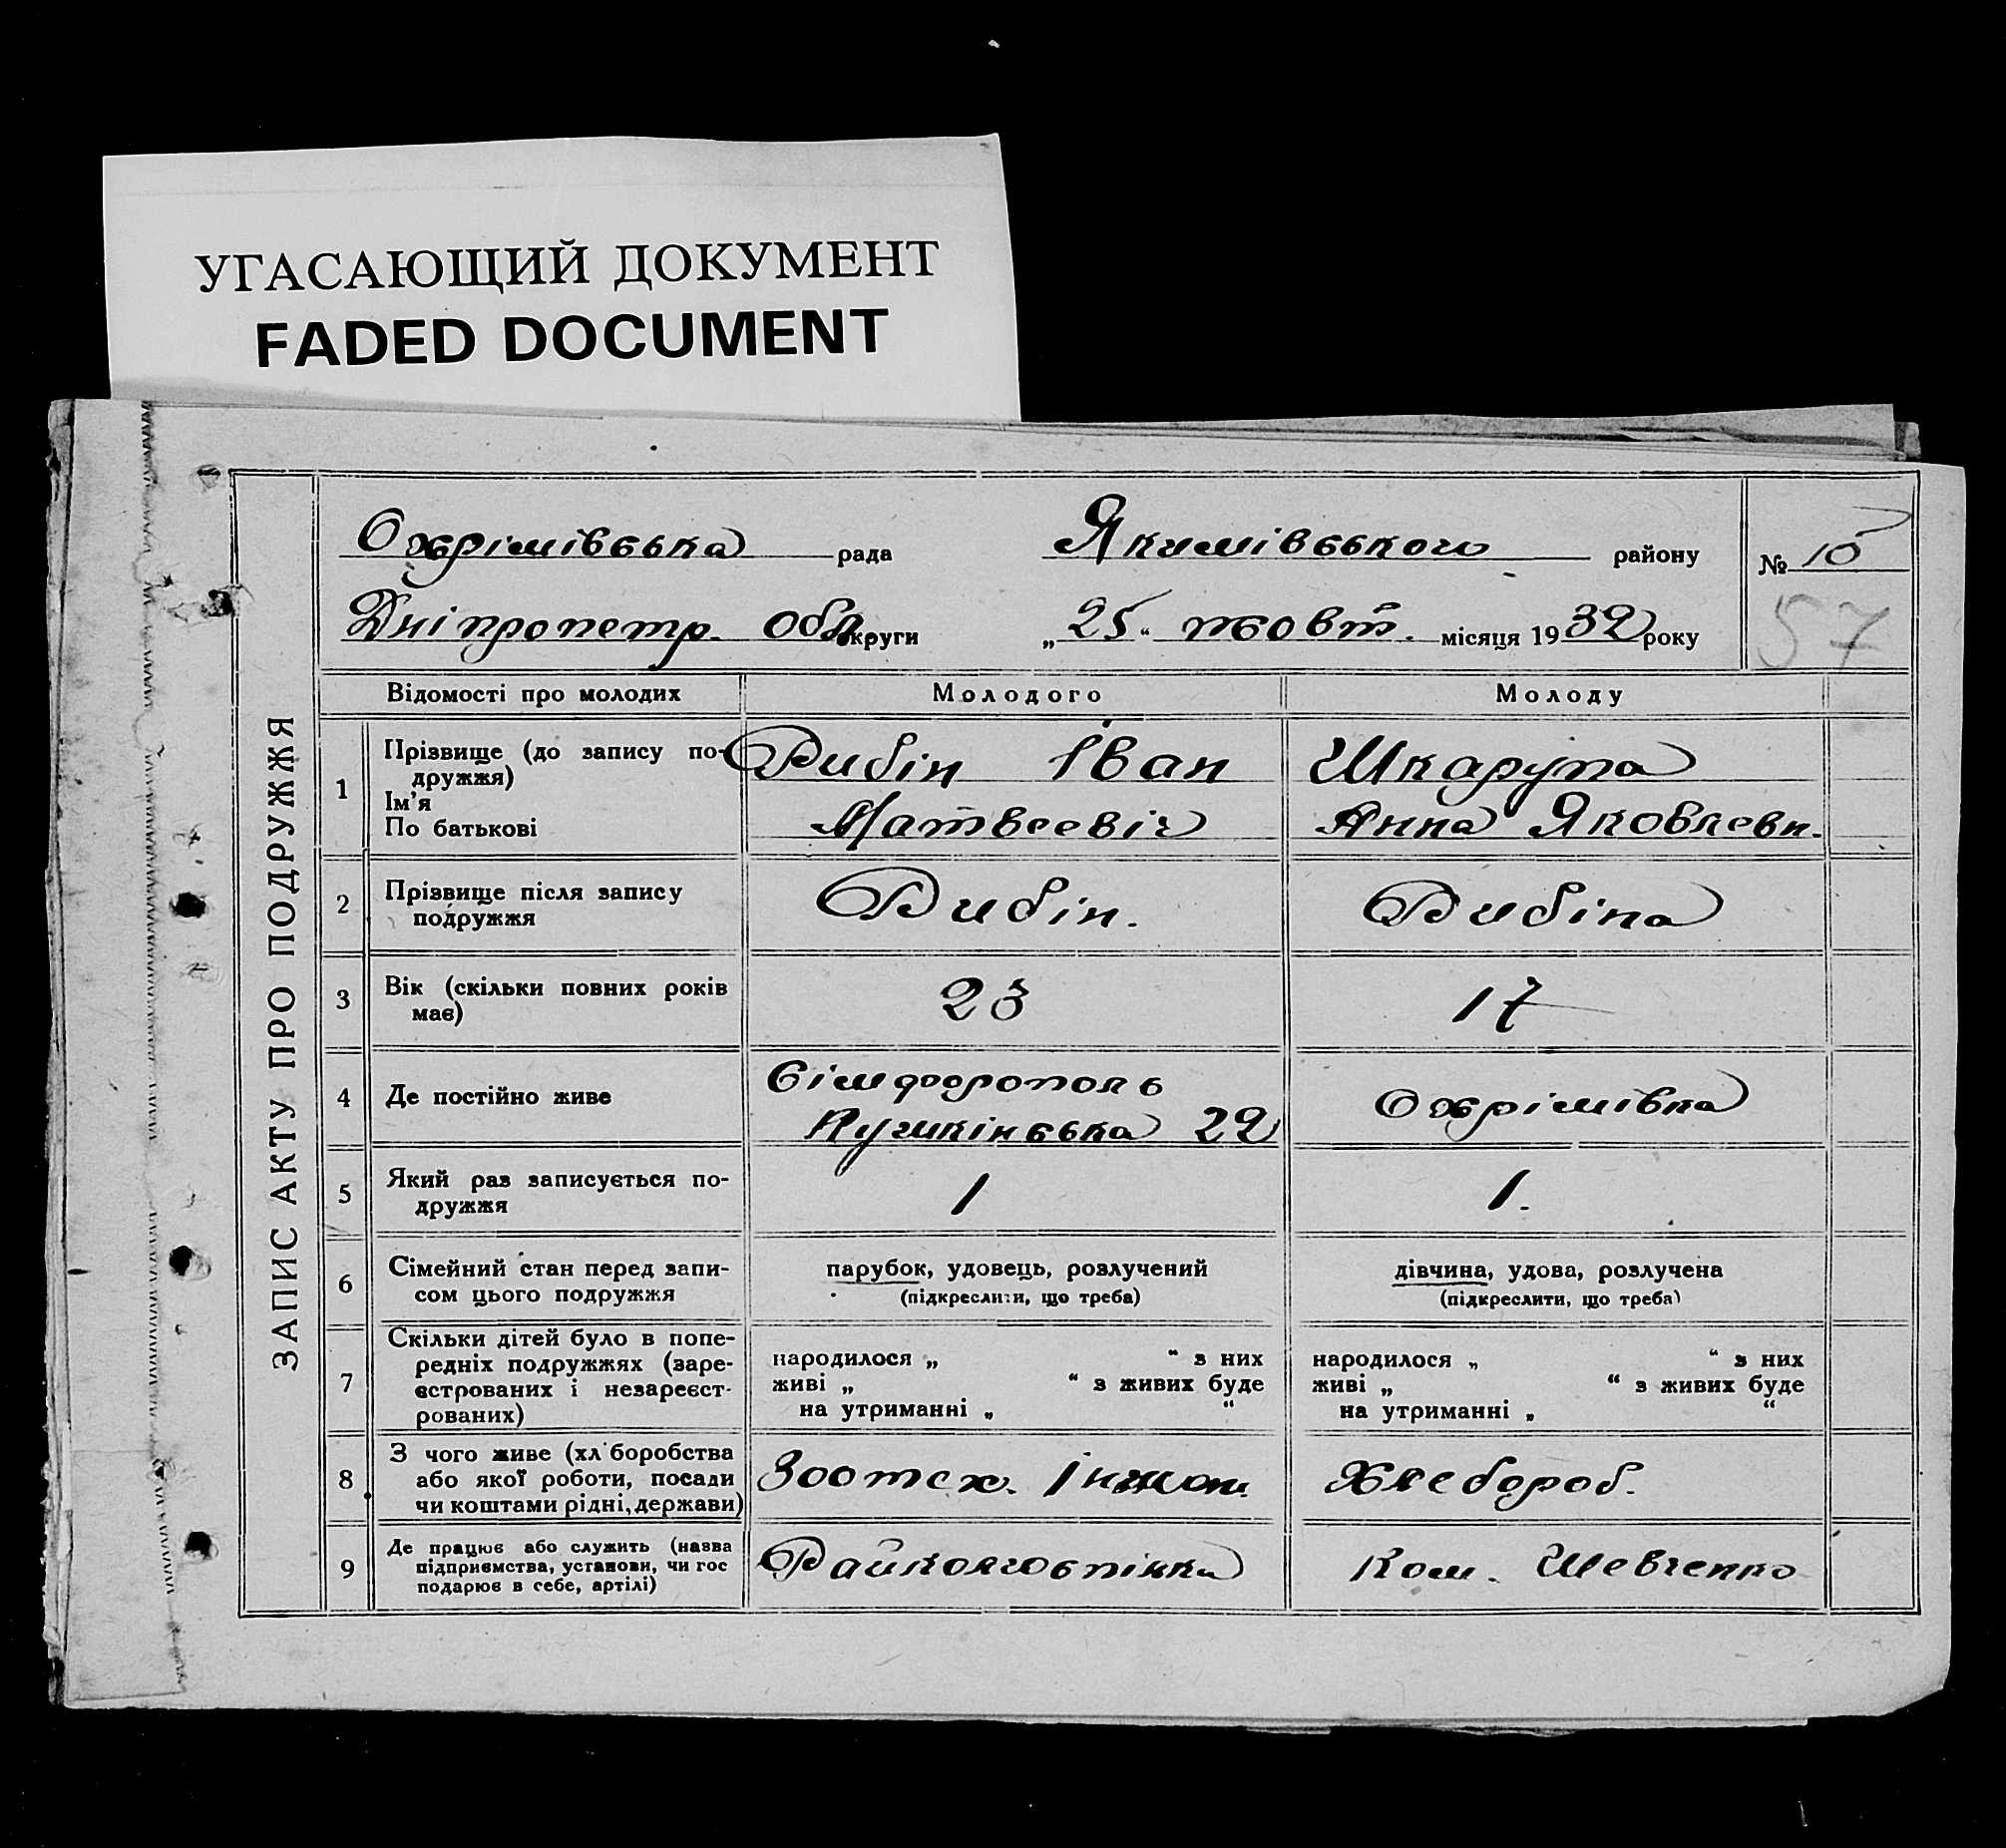 УГАСАЮЩИЙ ДОКУМЕНТ
FADED DOCUMENT
ЗАПИС АКТУ ПРО ПОДРУЖЖЯ
Охрімівська рада Якимівського району № 10
Дніпропетр. обл. округи „25“ жовт. місяця 1932 року 57
Відомості про молодих Молодого Молоду
1 Прізвище (до запису по- Рибін Іван Шкарупа
дружжя)
Ім'я
По батькові Матвеевіч Анна Яковлевн.
2 Прізвище після запису Рибін. Рибіна
подружжя
3 Вік (скільки повних років 23 17
має)
4 Де постійно живе Сімфорополь Охрімівка
Пушкінська 22
5 Який раз записується по- 1 1.
дружжя
6 Сімейний стан перед запи- парубок, удовець, розлучений дівчина, удова, розлучена
сом цього подружжя (підкреслити, що треба) (підкреслити, що треба)
7 Скільки дітей було в попе-
редніх подружжях (заре- народилося „ “ з них народилося „ “ з них
єстрованих і незареєст- живі „ “ з живих буде живі „ “ з живих буде
рованих) на утриманні „ “ на утриманні „ “
8 З чого живе (хл боробства
або якої роботи, посади Зоотех. Інжен. Хлебороб.
чи коштами рідні, держави)
9 Де працює або служить (назва
підприємства, установи, чи гос Райколгоспілка Ком. Шевченко
подарює в себе, артілі)